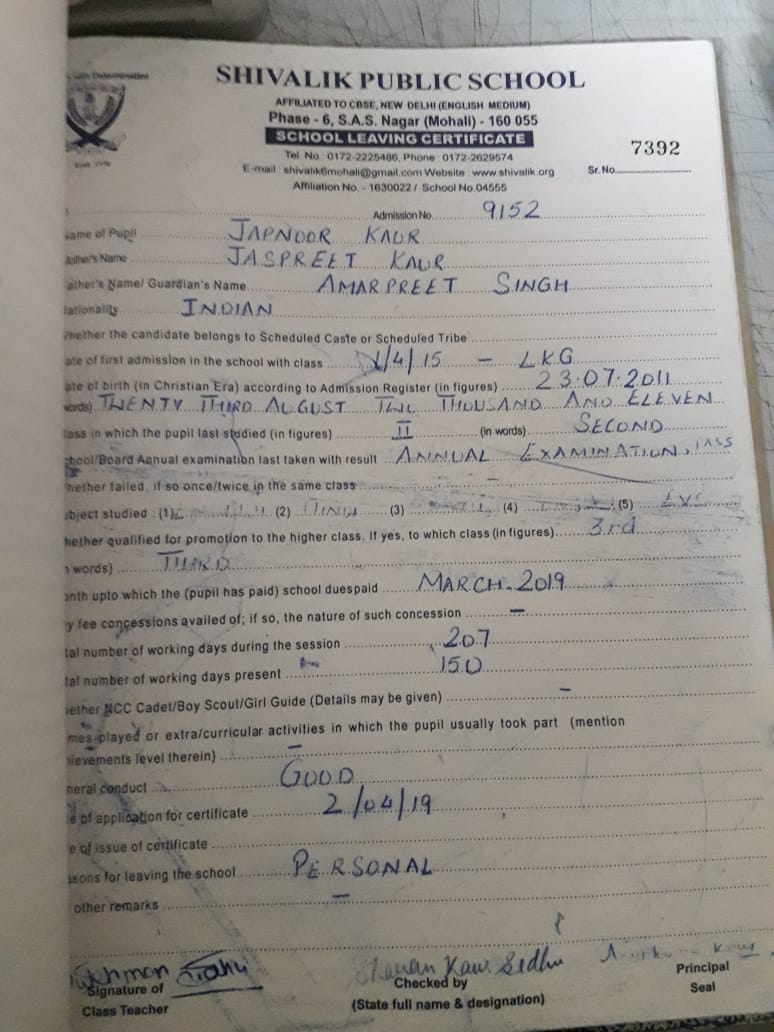 with Determination
SHIVALIK PUBLIC SCHOOL
AFFILIATED TO CBSE, NEW DELHI (ENGLISH MEDIUM)
Phase - 6, S.A.S. Nagar (Mohali) - 160 055
SCHOOL LEAVING CERTIFICATE
7392
Tel. No. 0172-2225486, Phone : 0172-2629574
E-mail : shivalik6mohali@gmail.com Website : www.shivalik.org Sr. No.
Affiliation No. - 1630022 / School No. 04555
Admission No. 9152
ame of Pupil JAPNOOR KAUR
other's Name JASPREET KAUR
ather's Name/ Guardian's Name AMARPREET SINGH
ationality INDIAN
hether the candidate belongs to Scheduled Caste or Scheduled Tribe
ate of first admission in the school with class 1/4/15 - LKG
ate of birth (in Christian Era) according to Admission Register (in figures) 23.07.2011
words) TWENTY THIRD AUGUST THOUSAND AND ELEVEN
ass in which the pupil last studied (in figures) II (in words) SECOND
hool/Board Annual examination last taken with result ANNUAL EXAMINATION,
hether failed, if so once/twice in the same class -
bject studied : (1) (2) HINDI (3) (4) (5) EVS
hether qualified for promotion to the higher class. If yes, to which class (in figures) 3rd
n words) THIRD
onth upto which the (pupil has paid) school duespaid MARCH. 2019
y fee concessions availed of; if so, the nature of such concession -
tal number of working days during the session 207
tal number of working days present 150
hether NCC Cadet/Boy Scout/Girl Guide (Details may be given) -
mes played or extra/curricular activities in which the pupil usually took part (mention
hievements level therein) -
neral conduct GOOD
e of application for certificate 2/04/19
e of issue of certificate
asons for leaving the school PERSONAL
other remarks -
Kaur Sidhu
Signature of Checked by Principal
Class Teacher (State full name & designation) Seal